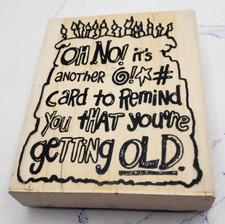 OH NO! it's
another @!☆#
card to Remind
you tHAt you're
getting OLD.